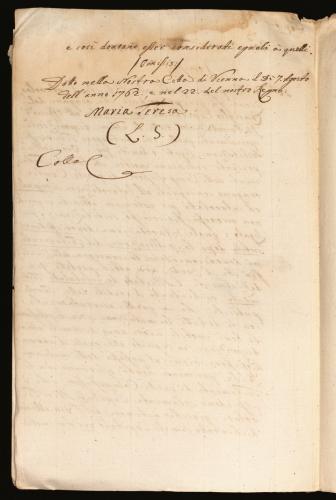 e così dovranno esser considerati eguali a quelli.
(Omissis)
Datto nella Nostra Città di Vienna li di 7. Agosto
dell'anno 1762. e nel 22. del nostro Regno.
Maria Teresa.
(L. S.)
Colla